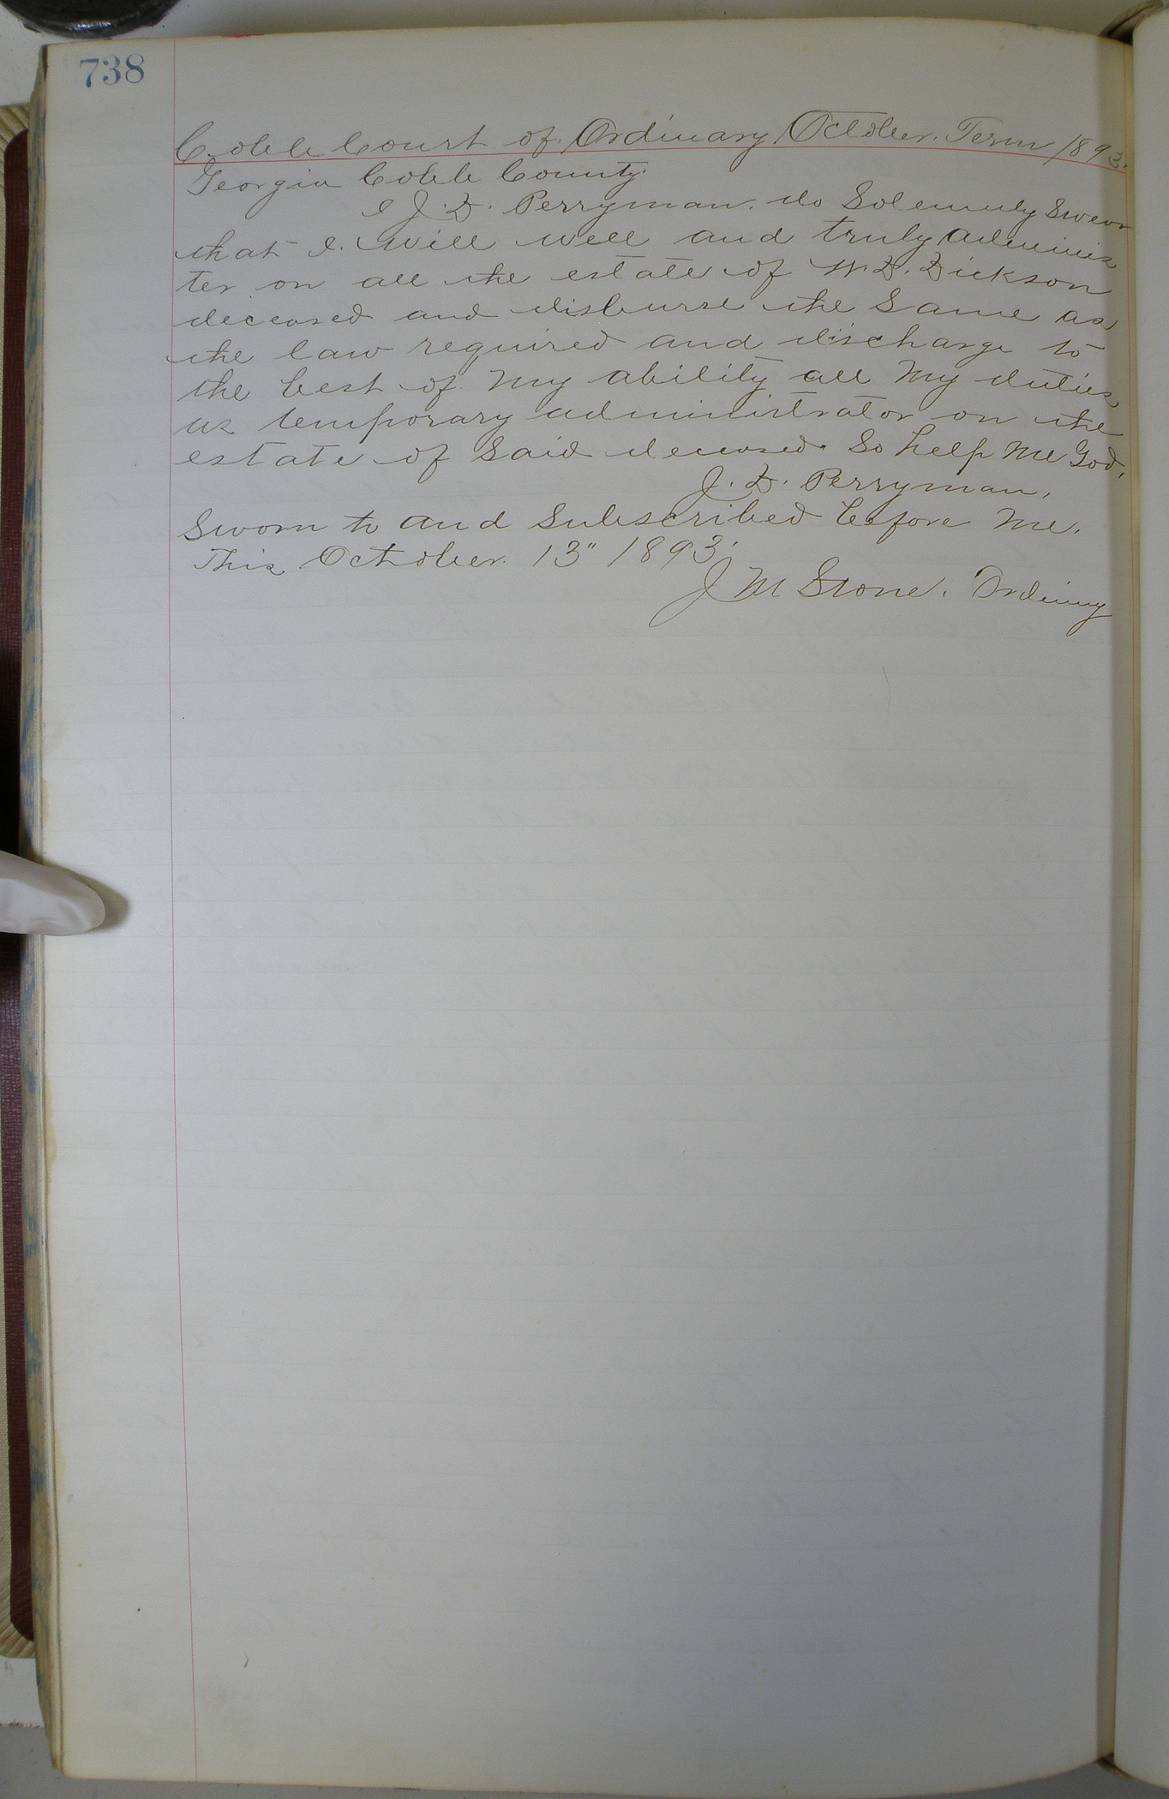 738
Cobb Court of Ordinary October Term 1893.
Georgia Cobb County.
I J. D. Perryman. do Solemnly Swear
that I. will well and truly adminis
ter on all the estate of W. D. Dickson
deceased and disburse the Same as
the law required and discharge to
the best of My ability all My duties
as temporary administrator on the
estate of Said deceased. So help Me God.
J. D. Perryman.
Sworn to and Subscribed before Me.
This October. 13" 1893.
J M Stone. Ordinary